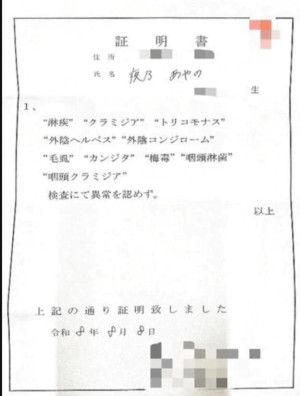 証明書
住所
氏名 夜乃 あやの
生
1、
"淋疾" "クラミジア" "トリコモナス"
"外陰ヘルペス" "外陰コンジローム"
"毛虱" "カンジタ" "梅毒" "咽頭淋菌"
"咽頭クラミジア"
検査にて異常を認めず。
以上
上記の通り証明致しました
令和 8 年 8 月 8 日